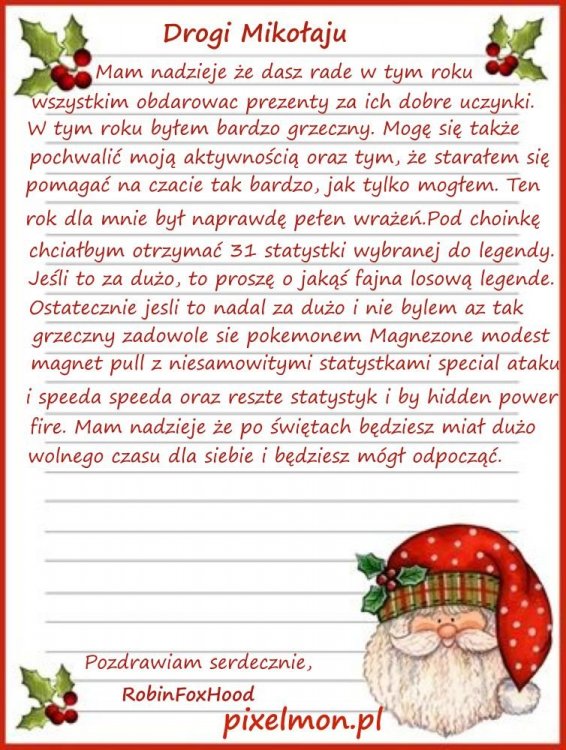 Drogi Mikołaju
Mam nadzieje że dasz rade w tym roku
wszystkim obdarowac prezenty za ich dobre uczynki.
W tym roku byłem bardzo grzeczny. Mogę się także
pochwalić moją aktywnością oraz tym, że starałem się
pomagać na czacie tak bardzo, jak tylko mogłem. Ten
rok dla mnie był naprawdę pełen wrażeń.Pod choinkę
chciałbym otrzymać 31 statystki wybranej do legendy.
Jeśli to za dużo, to proszę o jakąś fajna losową legende.
Ostatecznie jesli to nadal za dużo i nie bylem az tak
grzeczny zadowole sie pokemonem Magnezone modest
magnet pull z niesamowitymi statystkami special ataku
i speeda speeda oraz reszte statystyk i by hidden power
fire. Mam nadzieje że po świętach będziesz miał dużo
wolnego czasu dla siebie i będziesz mógł odpocząć.
Pozdrawiam serdecznie,
RobinFoxHood
pixelmon.pl